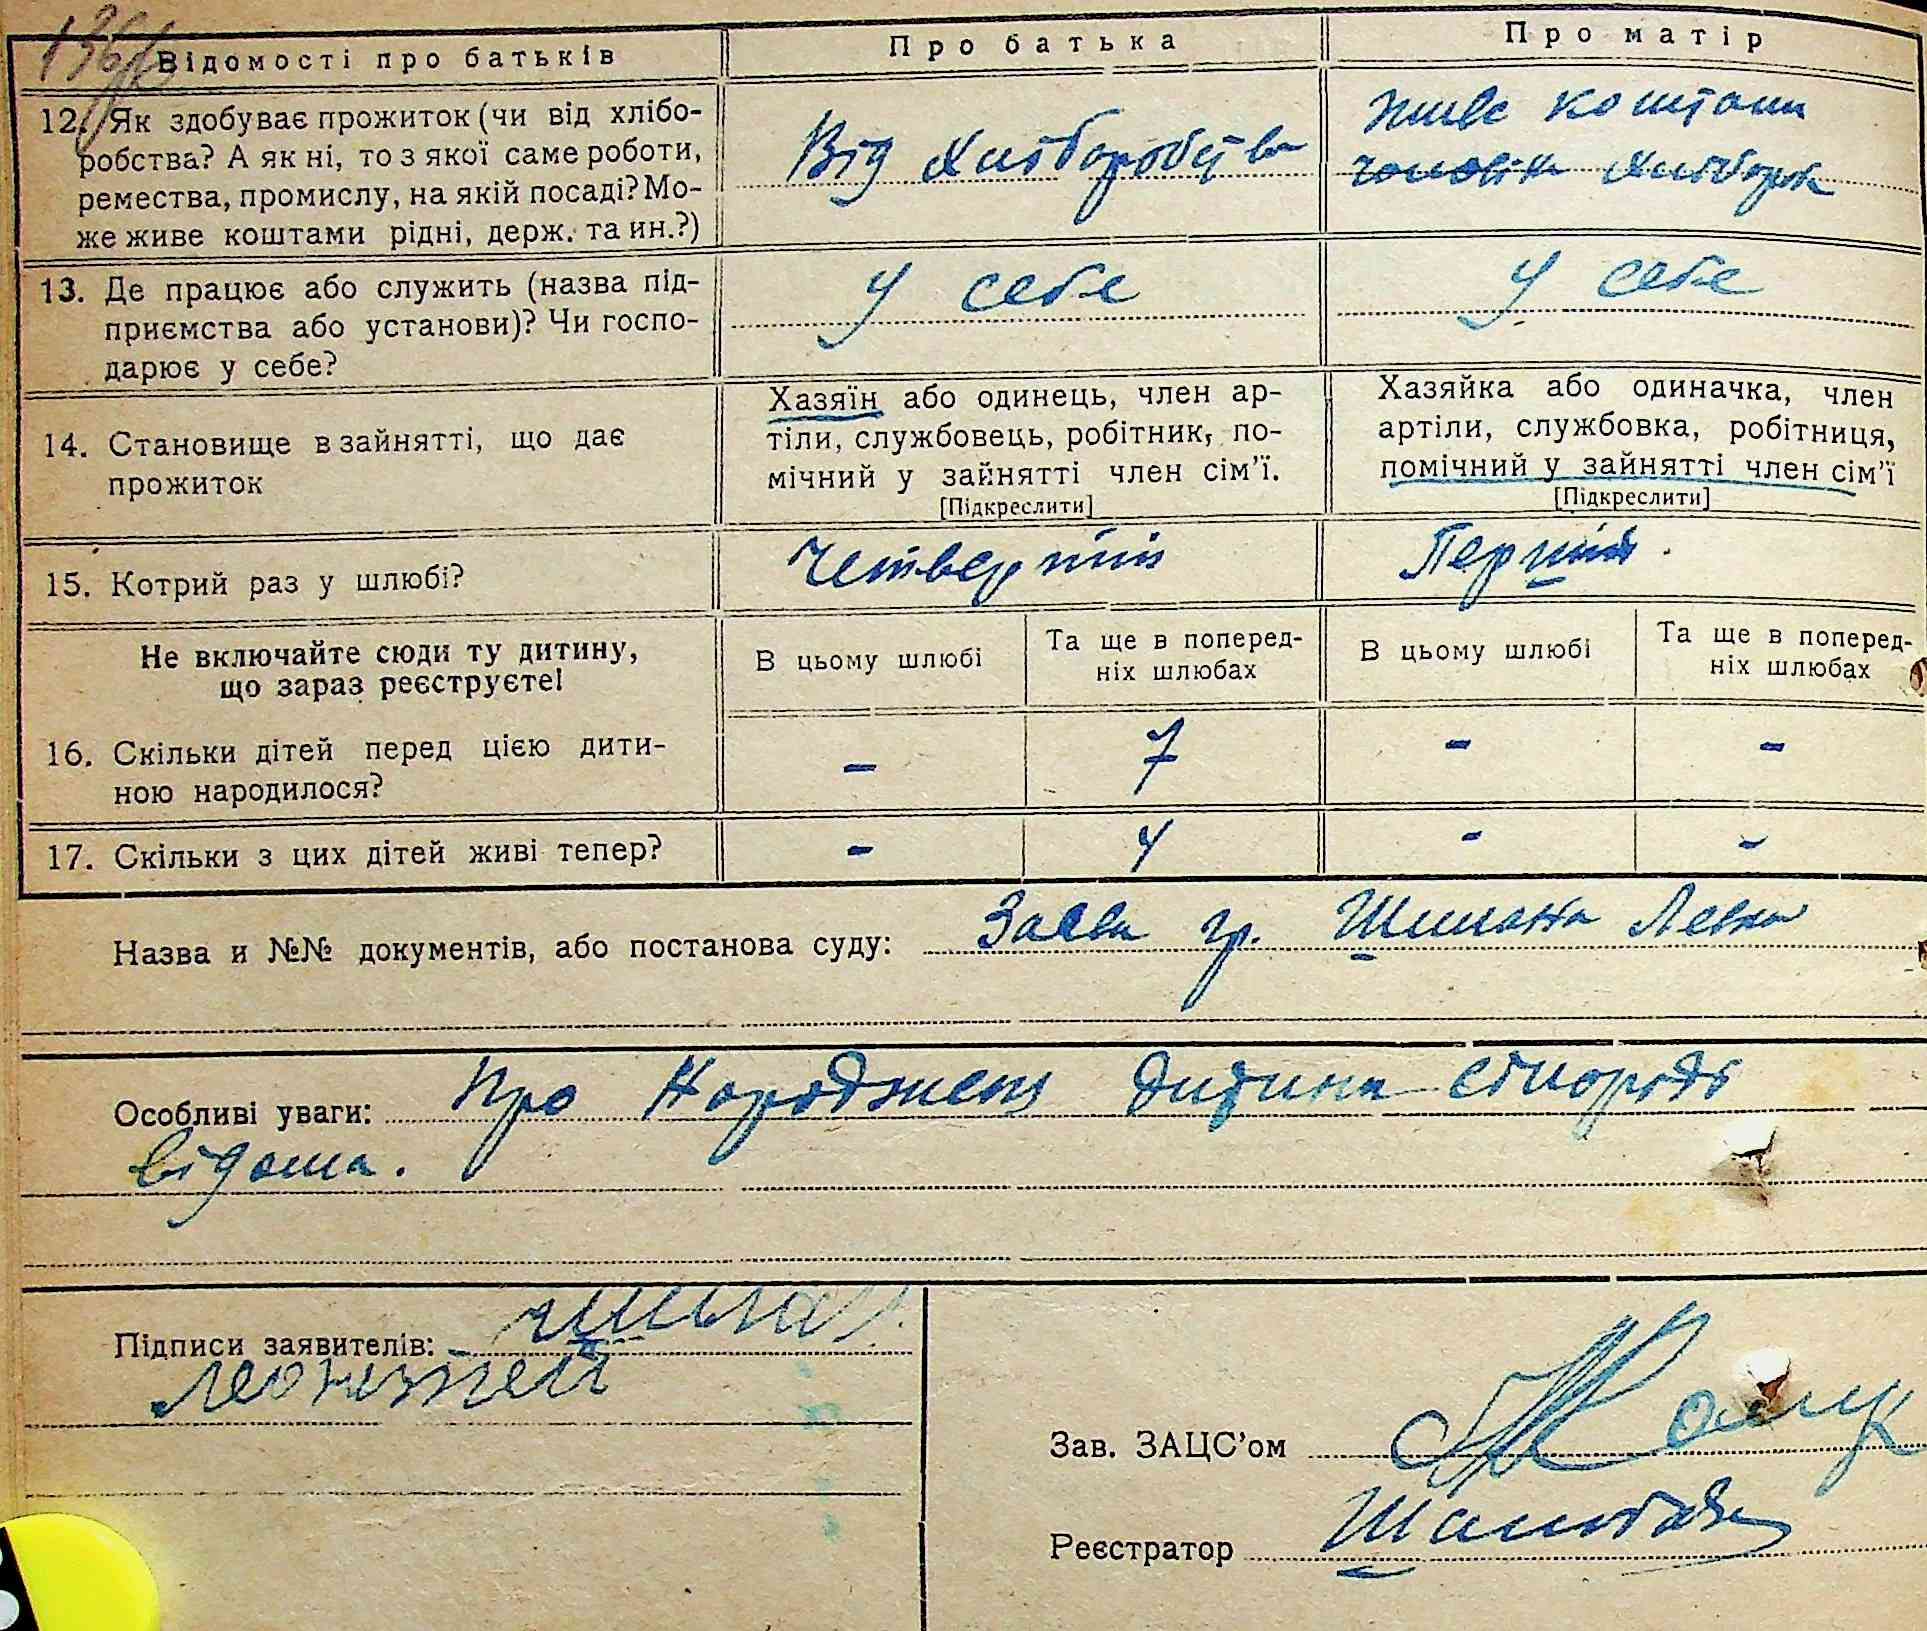 Відомості про батьків
Про батька
Про матір
12. Як здобуває прожиток (чи від хлібо-
робства? А як ні, то з якої саме роботи,
ремества, промислу, на якій посаді? Мо-
же живе коштами рідні, держ. та ин.?)
Від хліборобства
живе коштами
чоловіка хлібороб
13. Де працює або служить (назва під-
приємства або установи)? Чи госпо-
дарює у себе?
У себе
У себе
14. Становище в зайнятті, що дає
прожиток
Хазяїн або одинець, член ар-
тіли, службовець, робітник, по-
мічний у зайнятті член сім'ї.
[Підкреслити]
Хазяйка або одиначка, член
артіли, службовка, робітниця,
помічний у зайнятті член сім'ї
[Підкреслити]
15. Котрий раз у шлюбі?
Четвертий
Перший
Не включайте сюди ту дитину,
що зараз реєструєте!
В цьому шлюбі
Та ще в поперед-
ніх шлюбах
В цьому шлюбі
Та ще в поперед-
ніх шлюбах
16. Скільки дітей перед цією дити-
ною народилося?
- 7 - -
17. Скільки з цих дітей живі тепер?
- 4 - -
Назва и №№ документів, або постанова суду: Заява гр. Левка
Особливі уваги: Про дитина
відома.
Підписи заявителів:
Зав. ЗАЦС'ом
Реєстратор